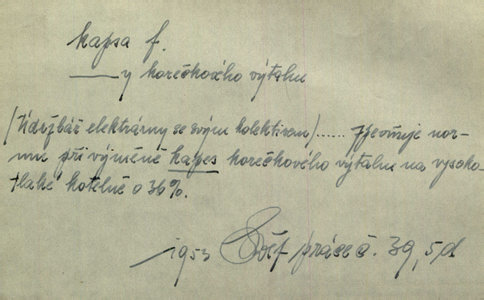 kapsa f.
——y korečkového výtahu
(Údržbář elektrárny se svým kolektivem)...... zpevňuje nor-
mu při výměně kapes korečkového výtahu na vysoko-
tlaké kotelně o 36%.
1953 Svět práce č. 39, 5d